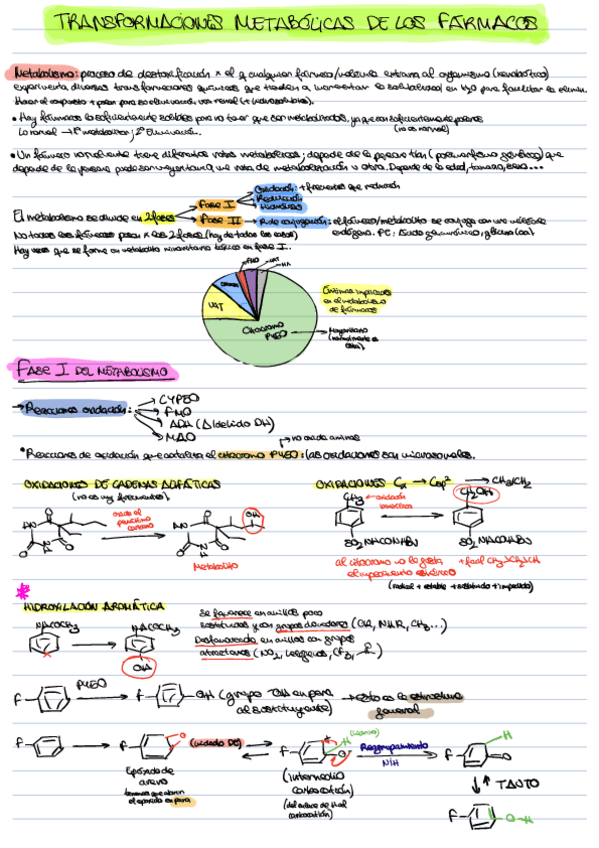 TRANSFORMACIONES METABÓLICAS DE LOS FÁRMACOS
Metabolismo: proceso de destoxificación x el q cualquier fármaco/molécula extraña al organismo (xenobiótico)
experimenta diversas transformaciones químicas que tienden a incrementar la solubilidad en H2O para facilitar la elimin.
Hacer el compuesto + polar para su eliminación vía renal (+ mayoritaria).
• Hay fármacos lo suficientemente solubles para no tener que ser metabolizados, ya que son suficientemente polares
Lo normal → 1º metabolizar; 2º Eliminación.. (no es normal)
• Un fármaco normalmente tiene diferentes rutas metabólicas; depende de la persona tlan (polimorfismo genético) que
depende de la persona puede una ruta de metabolización u otra. Depende de la edad, tamaño, sexo...
Oxidación: + frecuentes que reducción
FASE I
Reducción
Hidrólisis
El metabolismo se divide en 2 fases
FASE II → R. de conjugación: el fármaco/metabolito se conjuga con una molécula
No todos los fármacos pasan x las 2 fases (hay de todos los casos)
endógena. PE: Ácido glucurónico, glicina
Hay veces que se forma un metabolito minoritario tóxico en fase I..
FMO
NAT
UGT
CITOCROMO
P450
→ Mayoritario
(normalmente es
Enzimas implicadas
en el metabolismo
de fármacos
FASE I DEL METABOLISMO
→ Reacciones oxidación:
CYP450
FMO
ADH (Aldehido DH)
MAO
→ no oxida aminas
• Reacciones de oxidación que cataliza el citocromo P450: (las oxidaciones son microsomales.
OXIDACIONES DE CADENAS ALIFÁTICAS
(no es muy frecuente)
oxida el
penúltimo
carbono
OH
Metabolito
OXIDACIONES Cα → Csp2 → CH3/CH2
CH3 ← oxidación
bencílica
CH2OH
SO2NHCONHBu
SO2NHCONHBu
al citocromo no le gusta
el impedimento estérico
+ fácil CH3>CH2>CH
(radical + estable + sustituido + impedido)
HIDROXILACIÓN AROMÁTICA
NHCOCH3
NHCOCH3
OH
Se favorece en anillos para
sustituidos y con grupos dadores (OH, NHR, CH3...)
Desfavorecida en anillos con grupos
atractores (NO2, halógenos, CF3,
F
P450
F
OH (grupo OH en para
al sustituyente)
→ esto es la estructura
general
F
F
O
Epóxido de
areno
tenemos que abrir
el epóxido en para
F
+
H
O
(intermedio
carbocatión)
Reagrupamiento
NIH
F
H
O
TAUTO
F
O-H